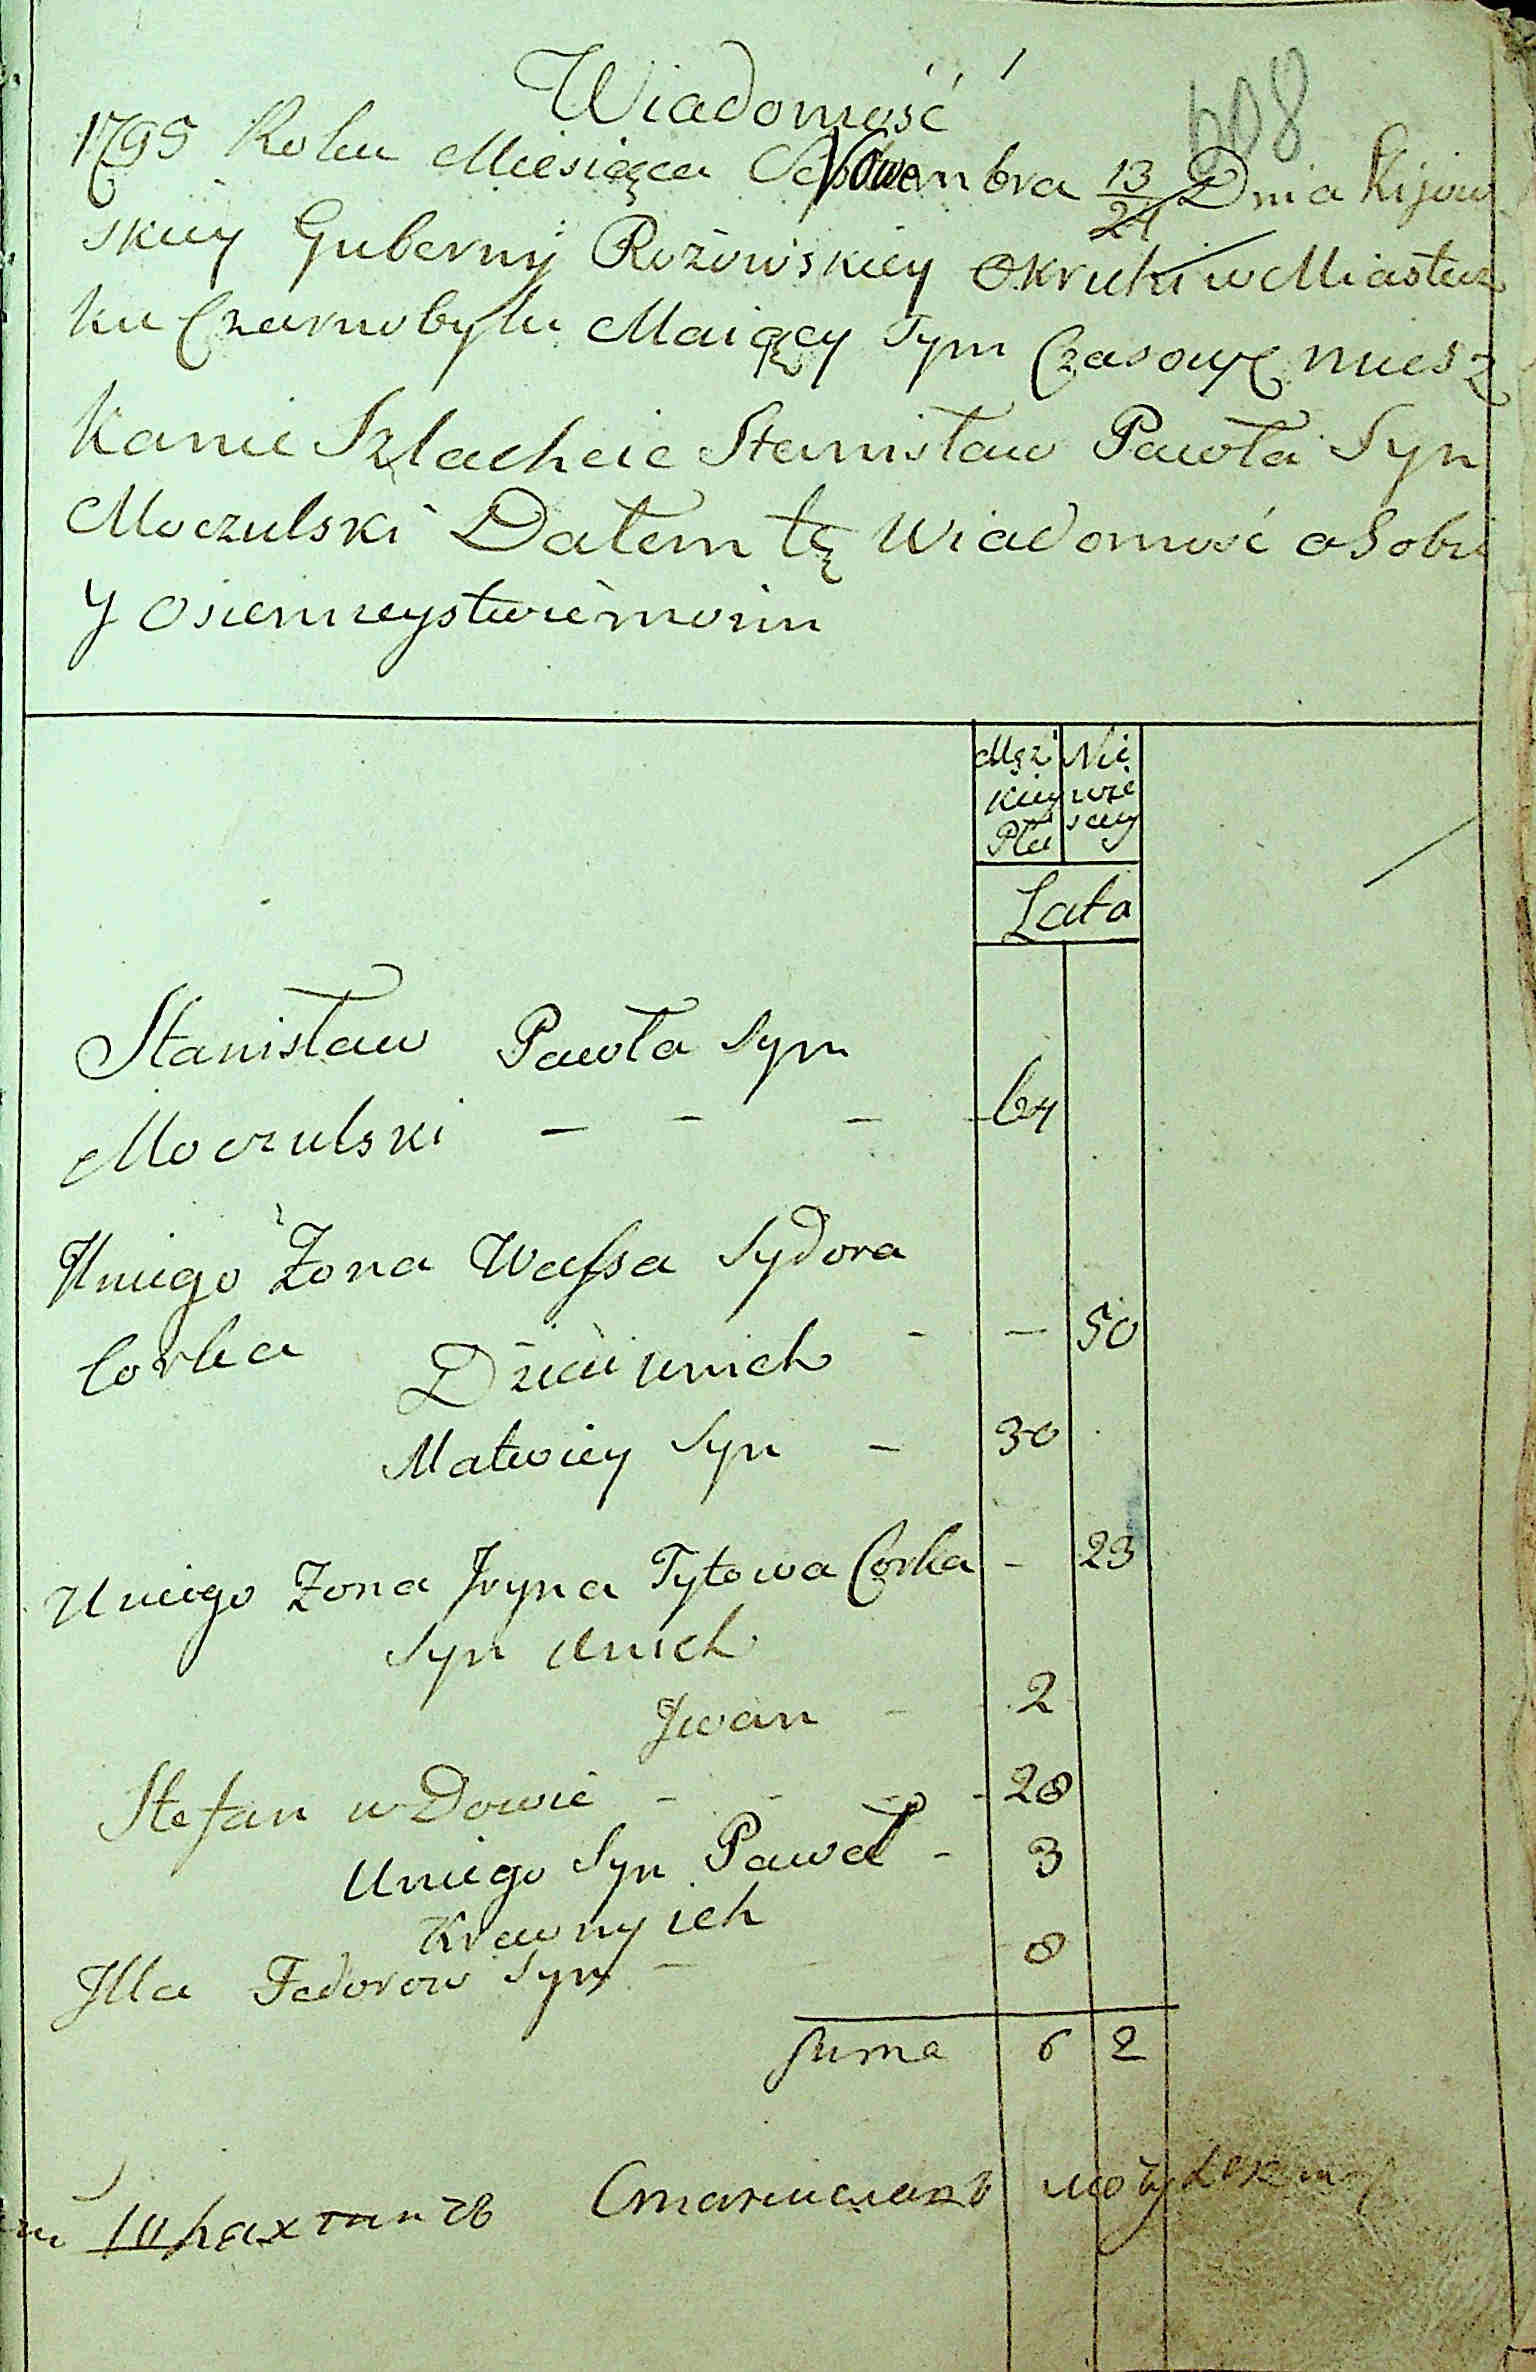 Wiadomość
608
1795 Roku Miesiąca Nowembra 13/24 Dnia Kijow
skiey Guberny Rożowskiey Okruhi w Miastecz
ku Czarnobylu Maiący Tym Czasowe miesz
kanie Szlachcic Stanisław Pawła Syn
Moczulski Dałem tę Wiadomość o Sobie
y o siemieystwie moim
Męz kiey Płci
Nie wie sciey
Lata
Stanisław Pawła Syn
Moczulski - - - 64
U niego Żona Wassa Sydora
Corka - - 50
Dzieci u nich
Matwiey Syn - 30
U niego Zona Iryna Tytowa Corka - 23
Syn u nich
Iwan - 2
Stefan w Dowie - - - 28
U niego Syn Paweł - 3
Krewny ich
Illa Fedorow Syn - 8
Suma 6 2
Шляхтичъ Станиславъ